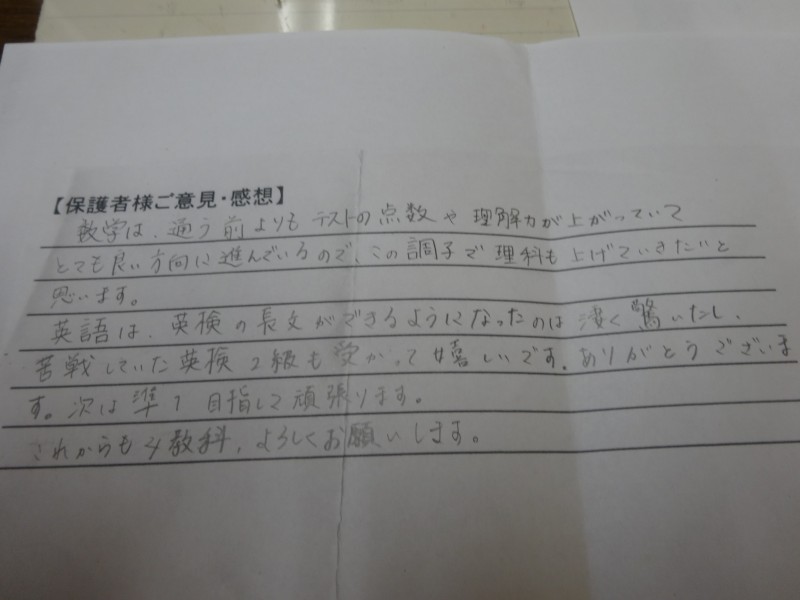 【保護者様ご意見・感想】
数学は、通う前よりもテストの点数や理解力が上がっていて
とても良い方向に進んでいるので、この調子で理科も上げていきたいと
思います。
英語は、英検の長文ができるようになったのは凄く驚いたし、
苦戦していた英検2級も受かって嬉しいです。ありがとうございま
す。次は準1目指して頑張ります。
これからも4教科、よろしくお願いします。